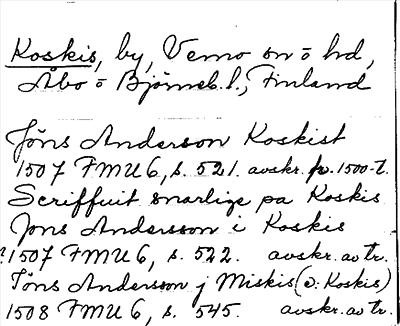 Koskis, by, Vemo sn o hd,
Åbo o Björneb. l., Finland
Jöns Anderson Koskist
1507 FMU 6, s. 521. avskr. fr. 1500-t.
Scriffuit snarlige pa Koskis
Jons Andersson i Koskis
?1507 FMU 6, s. 522. avskr. av tr.
Jöns Anderson j Miskis (ɔ: Koskis)
1508 FMU 6, s. 545. avskr. av tr.